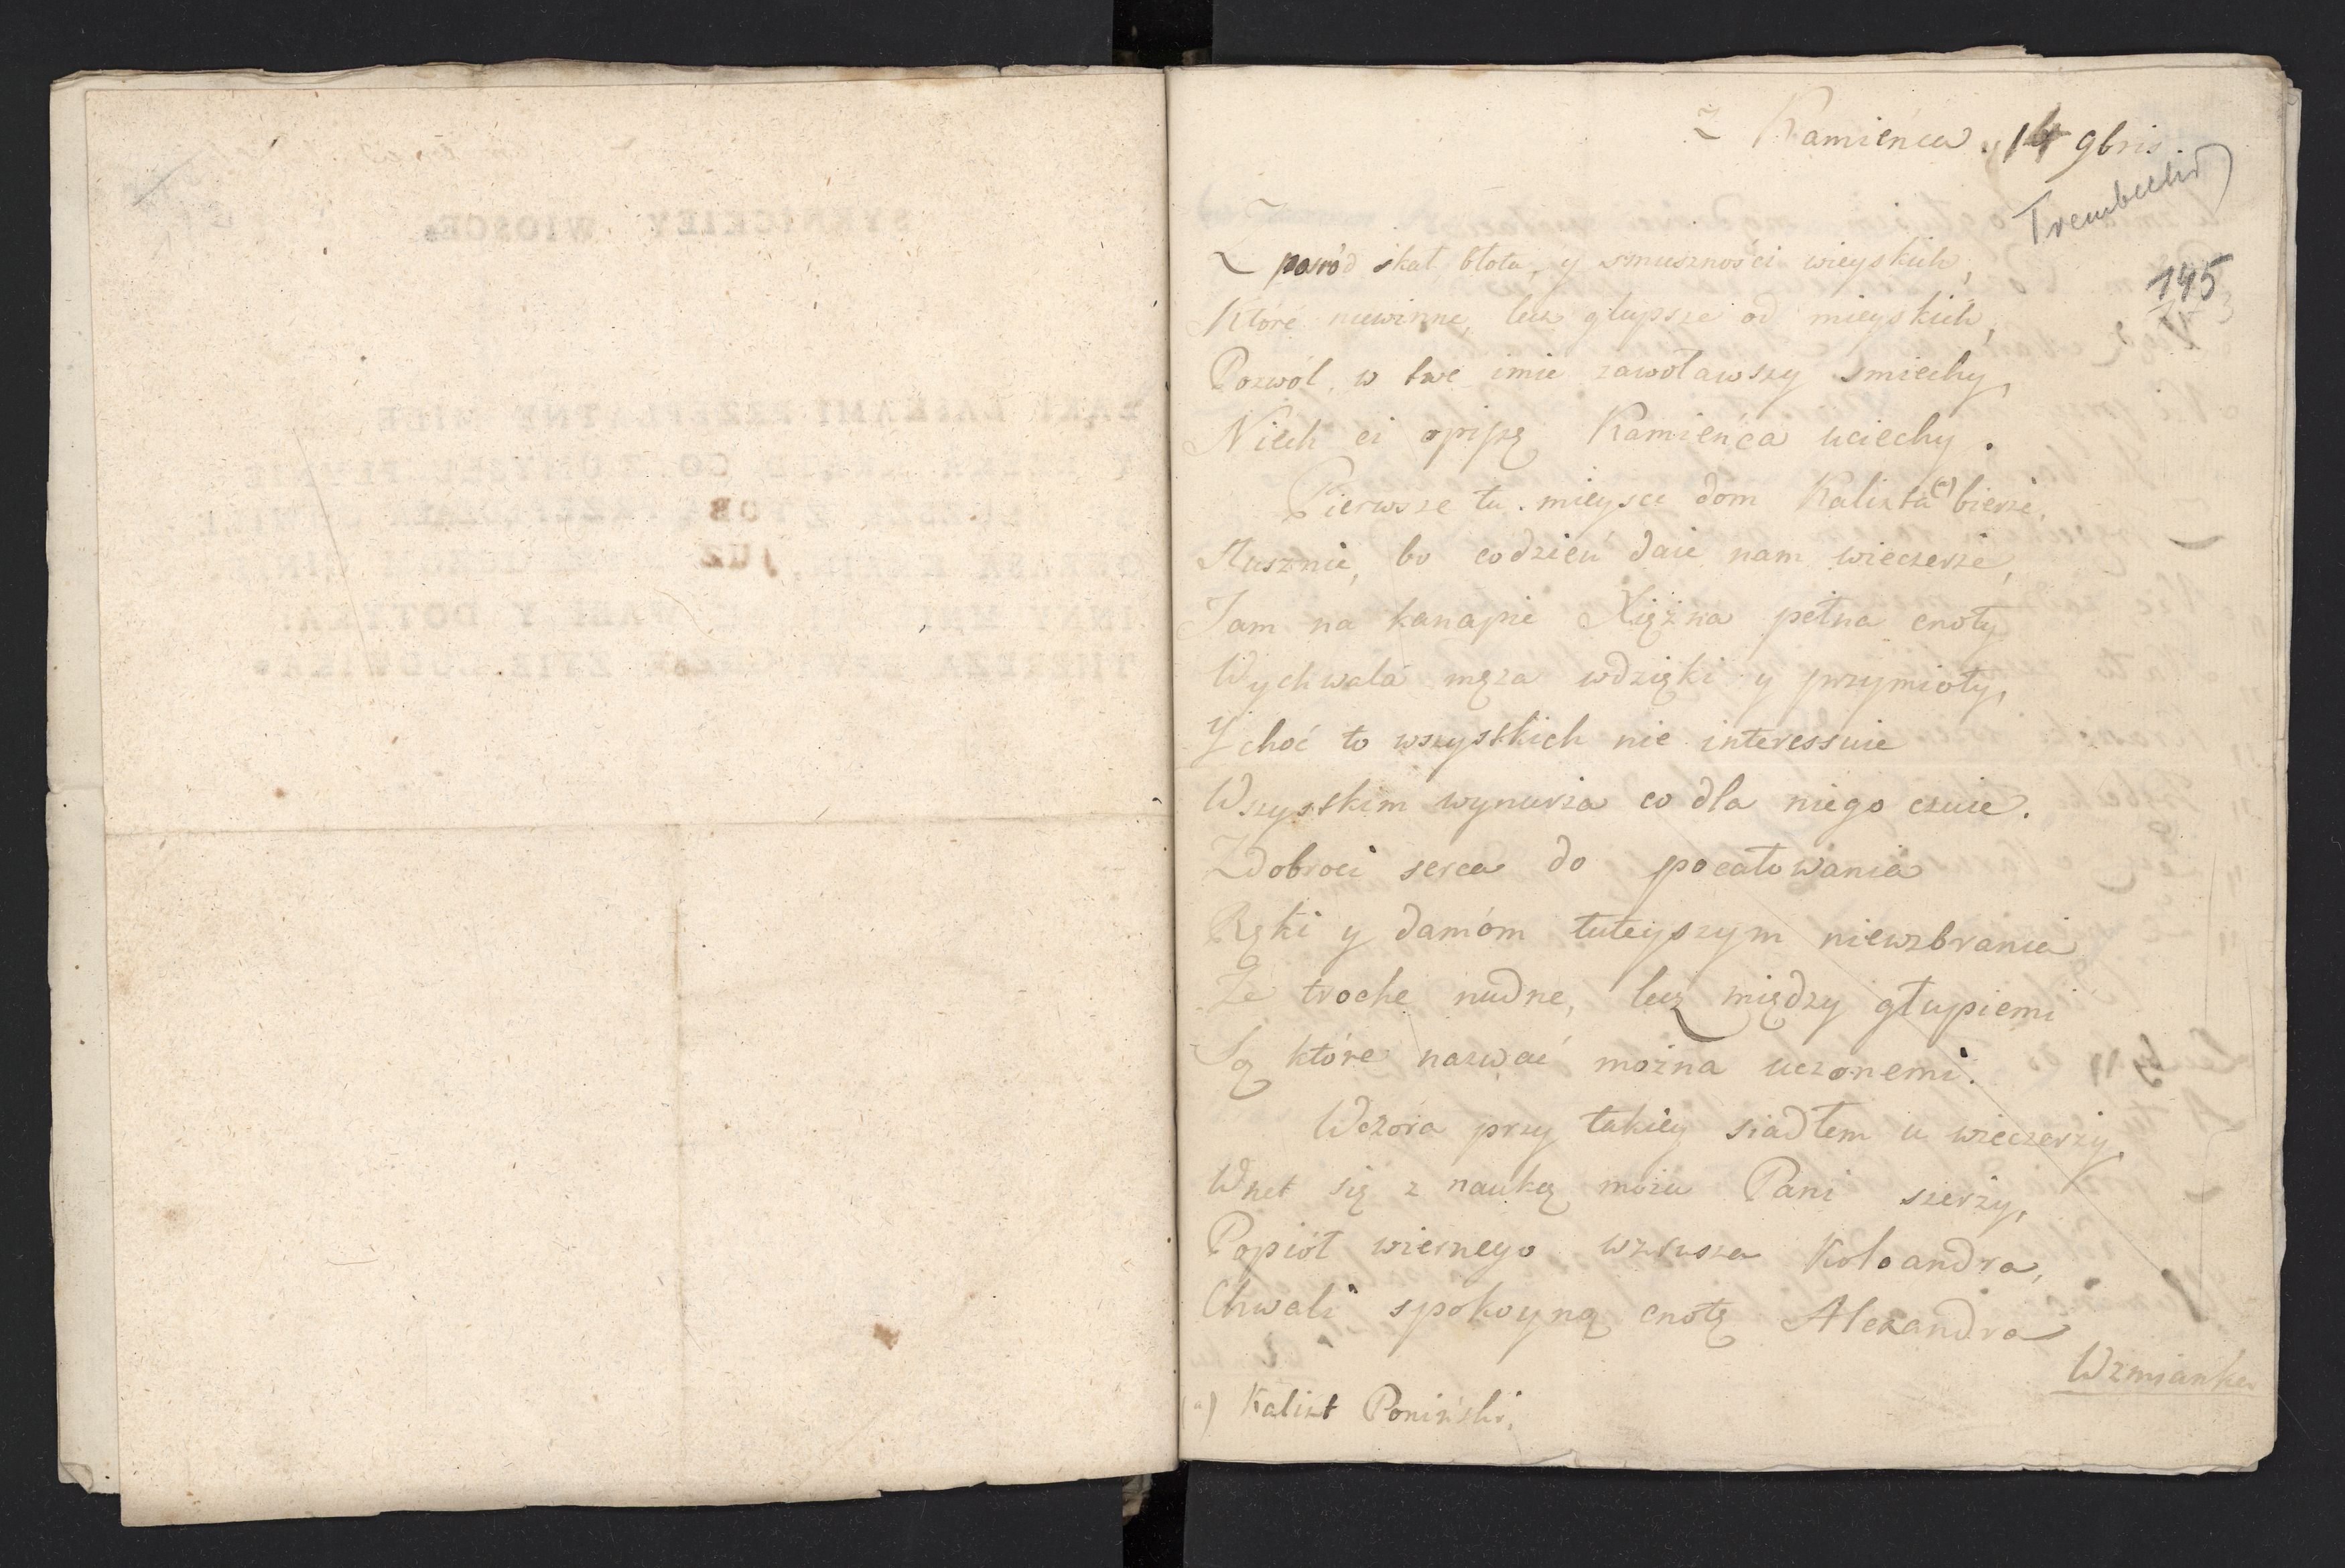 Z Kamieńca, 14 9bris.
Trembecki
145
Z posród skał, błota, y smuszności wieyskich,
Które niewinne, lecz głupsze od mieyskich,
Pozwól, w twe imie zawoławszy smiechy,
Niech ci opiszę Kamieńca uciechy.
Pierwsze tu mieysce dom Kalixta (a) bierze,
Słusznie, bo codzień daie nam wieczerze,
Tam na kanapie Xiężna pełna cnoty
Wychwala męża wdzięki y przymioty,
Y choć to wszystkich nie interessuie
Wszystkim wynurza co dla niego czuie.
Z dobroci serca do pocałowania
Ręki y damóm tuteyszym niewzbrania
Że troche nudne, lecz między głupiemi
Są które nazwać można uczonemi.
Wczora przy takiey siadłem u wieczerzy,
Wnet się z nauką moia Pani szerzy,
Popiół wiernego wzrusza Koloandra,
Chwali spokoyną cnotę Alexandra
Wzmianka
(a) Kalixt Poniński.